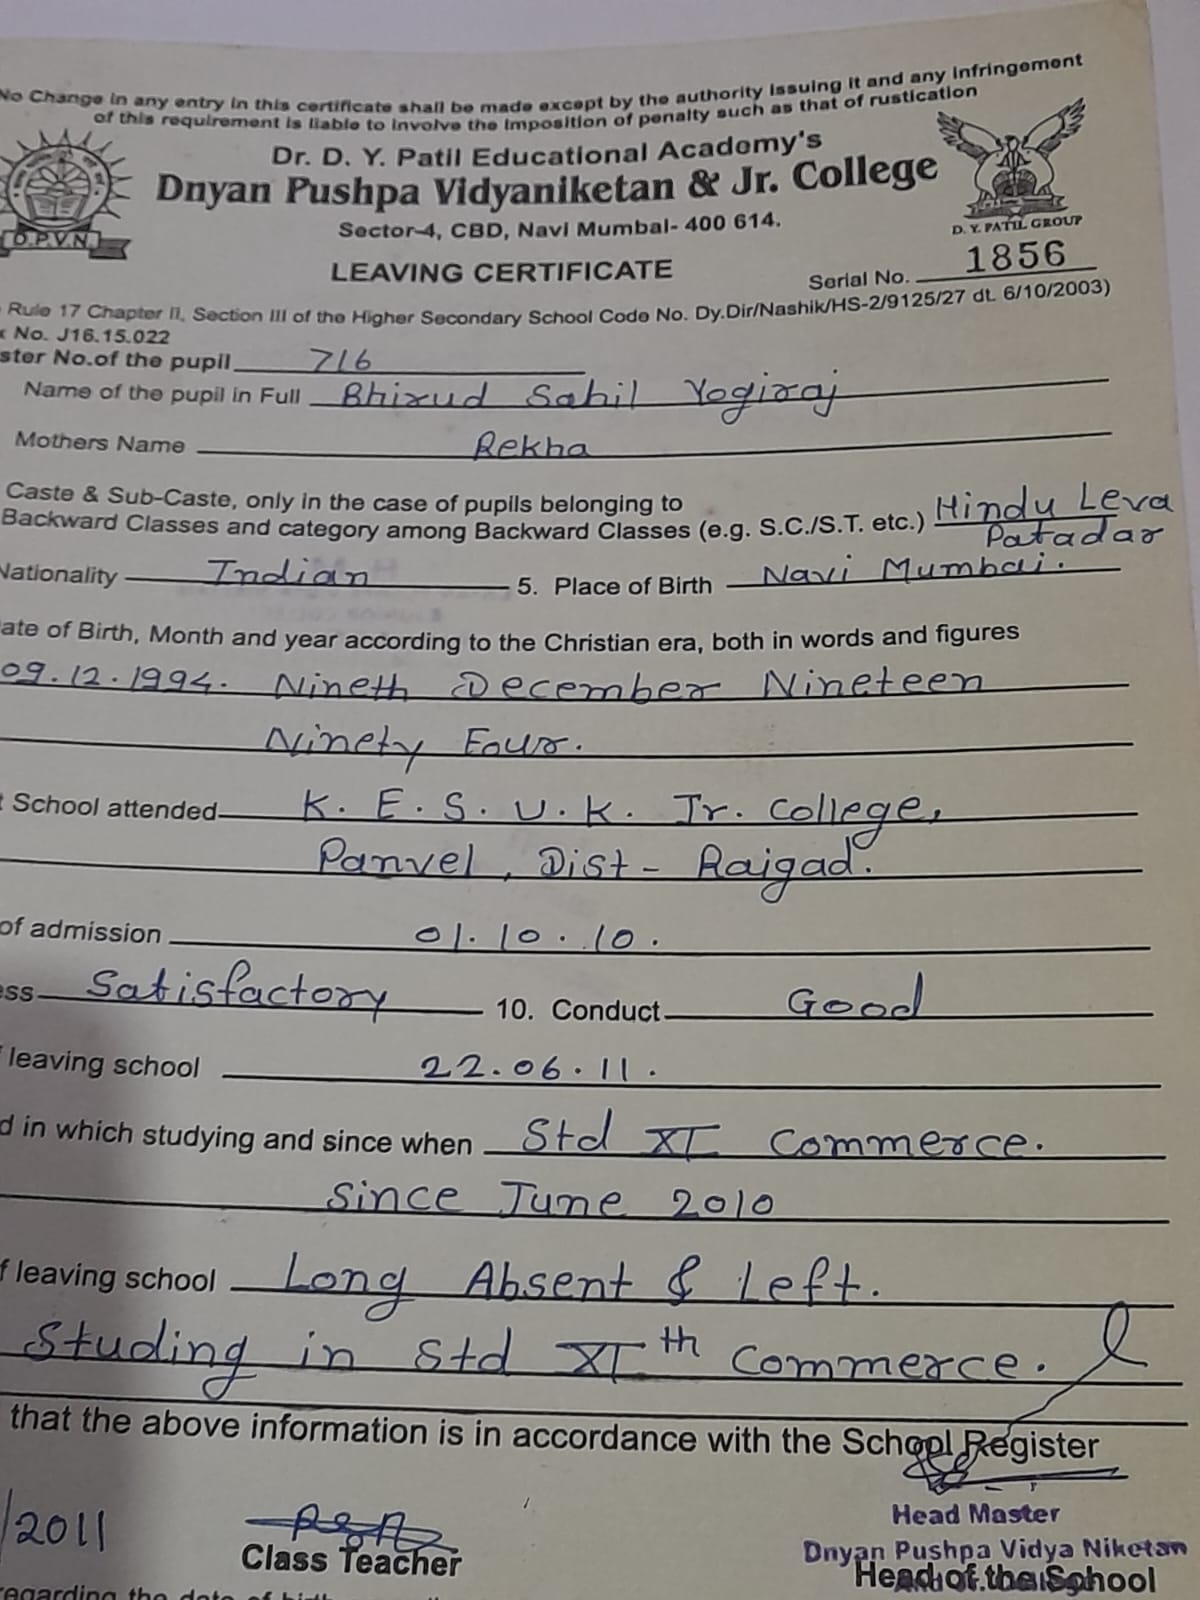 No Change in any entry in this certificate shall be made except by the authority issuing it and any infringement
of this requirement is liable to involve the imposition of penalty such as that of rustication
Dr. D. Y. Patil Educational Academy's
Dnyan Pushpa Vidyaniketan & Jr. College
Sector-4, CBD, Navi Mumbai- 400 614.
D.P.V.N.
D. Y. PATIL GROUP
LEAVING CERTIFICATE
Serial No. 1856
Rule 17 Chapter II, Section III of the Higher Secondary School Code No. Dy.Dir/Nashik/HS-2/9125/27 dt. 6/10/2003)
x No. J16.15.022
ster No.of the pupil 716
Name of the pupil in Full Bhirud Sahil Yogiraj
Mothers Name Rekha
Caste & Sub-Caste, only in the case of pupils belonging to
Backward Classes and category among Backward Classes (e.g. S.C./S.T. etc.) Hindu Leva
Patadar
Nationality Indian 5. Place of Birth Navi Mumbai.
ate of Birth, Month and year according to the Christian era, both in words and figures
09.12.1994. Nineth December Nineteen
Ninety Four.
t School attended K. E. S. U. K. Jr. College,
Panvel, Dist - Raigad.
of admission 01.10.10.
ess Satisfactory 10. Conduct Good
f leaving school 22.06.11.
d in which studying and since when Std XI Commerce.
since June 2010
f leaving school Long Absent & Left.
Studing in Std XIth Commerce.
that the above information is in accordance with the School Register
/2011
Class Teacher
Head Master
Dnyan Pushpa Vidya Niketan
Head of the School
regarding the date of birth